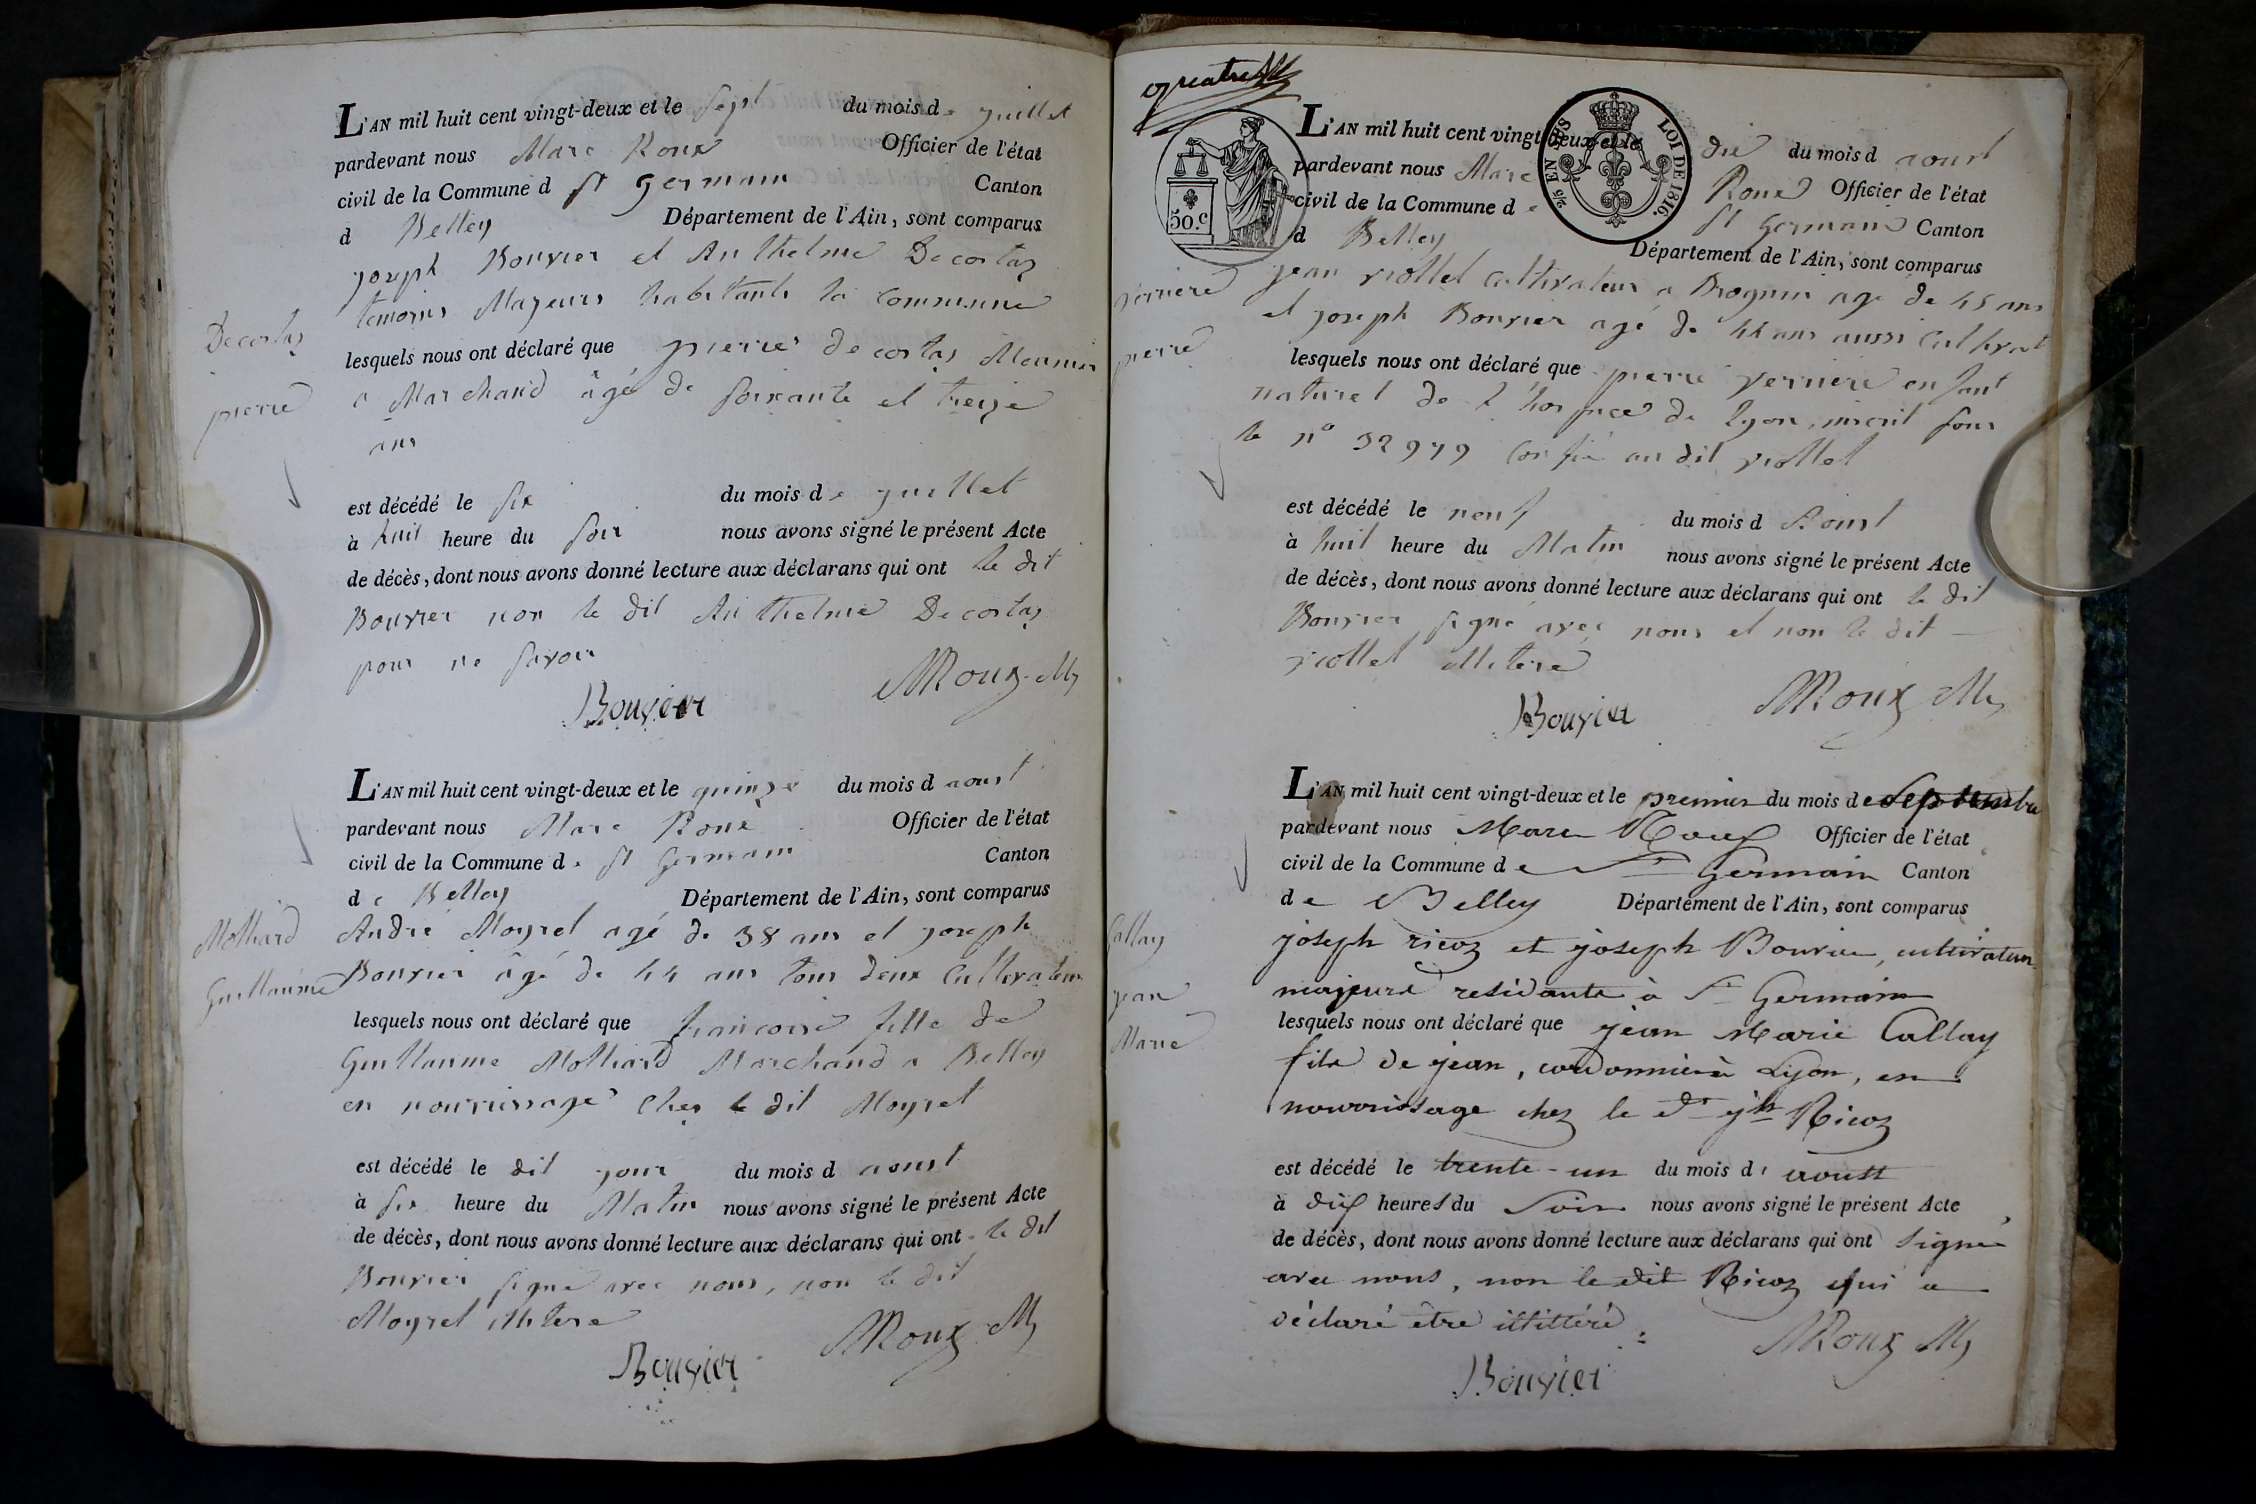 L'AN mil huit cent vingt-deux et le sept du mois de juillet
pardevant nous Marc Roux Officier de l'état
civil de la Commune d St germain Canton
d Belley Département de l'Ain, sont comparus
joseph Bouvier et Anthelme Decostaz
temoins Majeurs habitants la Commune
Decostaz
pierre
lesquels nous ont déclaré que pierre decostaz Meunier
a Marchand âgé de soixante et treize
ans
est décédé le six du mois de juillet
à huit heure du soir nous avons signé le présent Acte
de décès, dont nous avons donné lecture aux déclarans qui ont le dit
Bouvier non le dit Anthelme Decostaz
pour ne savoir
Bouvier MRoux M
L'AN mil huit cent vingt-deux et le quinze du mois d aoust
pardevant nous Marc Roux Officier de l'état
civil de la Commune de St germain Canton
de Belley Département de l'Ain, sont comparus
Molliard
Guillaume
André Moyret agé de 38 ans et joseph
Bouvier âgé de 44 ans tous deux Cultivateurs
lesquels nous ont déclaré que francoise fille de
Guillaume Molliard Marchand a Belley
en nourrissage Chez le dit Moyret
est décédé le dit jour du mois d aoust
à six heure du Matin nous avons signé le présent Acte
de décès, dont nous avons donné lecture aux déclarans qui ont le dit
Bouvier signé avec nous, non le dit
Moyret illitere
Bouvier MRoux M
quatre
50.c
2/9 EN SUS LOI DE 1816.
L'AN mil huit cent vingt-deux et le dix du mois d aoust
pardevant nous Marc Roux Officier de l'état
civil de la Commune de St germain Canton
d Belley Département de l'Ain, sont comparus
verniere
pierre
jean viollet Cultivateur a Brognin agé de 45 ans
et joseph Bouvier agé de 44 ans aussi Cultivat
lesquels nous ont déclaré que pierre verniere enfant
naturel de l'hospice de lyon, inscrit sous
le n° 32979 Confié au dit viollet
est décédé le neuf du mois d Aoust
à huit heure du Matin nous avons signé le présent Acte
de décès, dont nous avons donné lecture aux déclarans qui ont le dit
Bouvier signé avec nous et non le dit
viollet illitere
Bouvier MRoux M
L'AN mil huit cent vingt-deux et le premier du mois de septembre
pardevant nous Marc Roux Officier de l'état
civil de la Commune de St Germain Canton
de Belley Département de l'Ain, sont comparus
Callay
jean
Marie
joseph ricoz et joseph Bouvier, cultivateurs
majeurs residants à St Germain
lesquels nous ont déclaré que jean Marie Callay
fils de jean, cordonnier à Lyon, en
nourrissage chez le dt jh Ricoz
est décédé le trente-un du mois d' aoust
à dix heures du Soir nous avons signé le présent Acte
de décès, dont nous avons donné lecture aux déclarans qui ont signé
avec nous, non le dit Ricoz qui a
déclaré être illittéré
Bouvier MRoux M